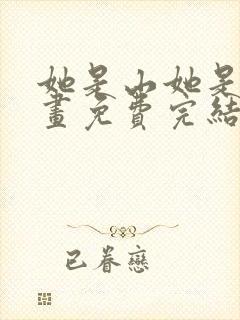 她是山她是
畫免費完結
已眷戀